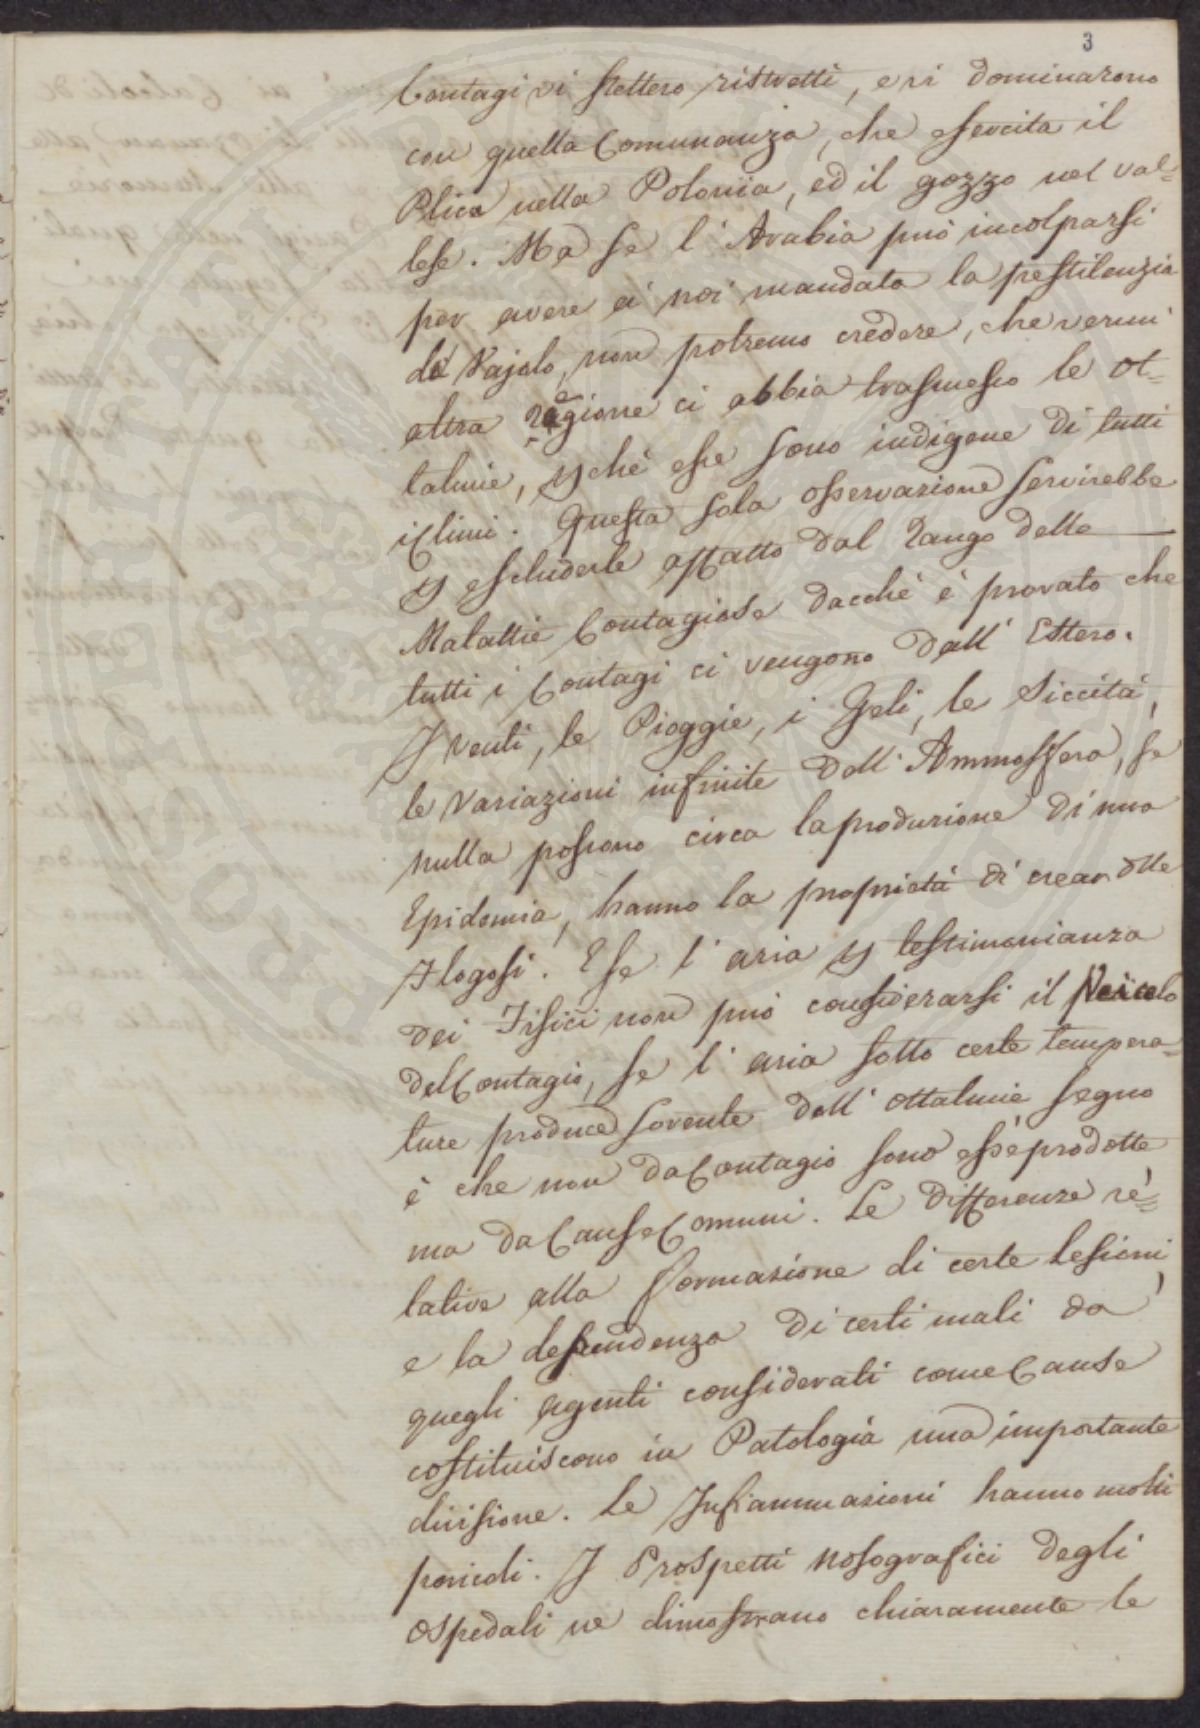 3
Contagi vi stettero ristretti, e vi dominarono
con quella Comunanza, che esercita il
Plica nella Polonia, ed il gozzo nel val=
lese. Ma se l'Arabia può incolparsi
per avere a noi mandato la pestilenzia
del Vajolo, non potremo credere, che veruni
altra regione ci abbia trasmesso le ot=
talmie, pchè esse sono indigene di tutti
i Climi. Questa sola osservazione servirebbe
p escluderle affatto dal rango delle
Malattie Contagiose dacchè è provato che
tutti i Contagi ci vengono dall'Estero.
I venti, le Pioggie, i Geli, le Siccità,
le Variazioni infinite dell'Ammosfera, se
nulla possono circa la produzione di una
Epidemia, hanno la proprietà di crear dlle
Flogosi. E se l'aria p testimonianza
dei Fisici non può considerarsi il Veicolo
del Contagio, se l'aria sotto certe tempera=
ture produce sovente dell'ottalmie, segno
è che non da Contagio sono esse prodotte
ma da Cause Comuni. Le differenze re=
lative alla formazione di certe Lesioni,
e la dependenza di certi mali da
quegli agenti considerati come Cause
costituiscono in Patologia una importante
divisione. Le Infiammazioni hanno molti
pericoli. I Prospetti nosografici degli
Ospedali ne dimostrano chiaramente le